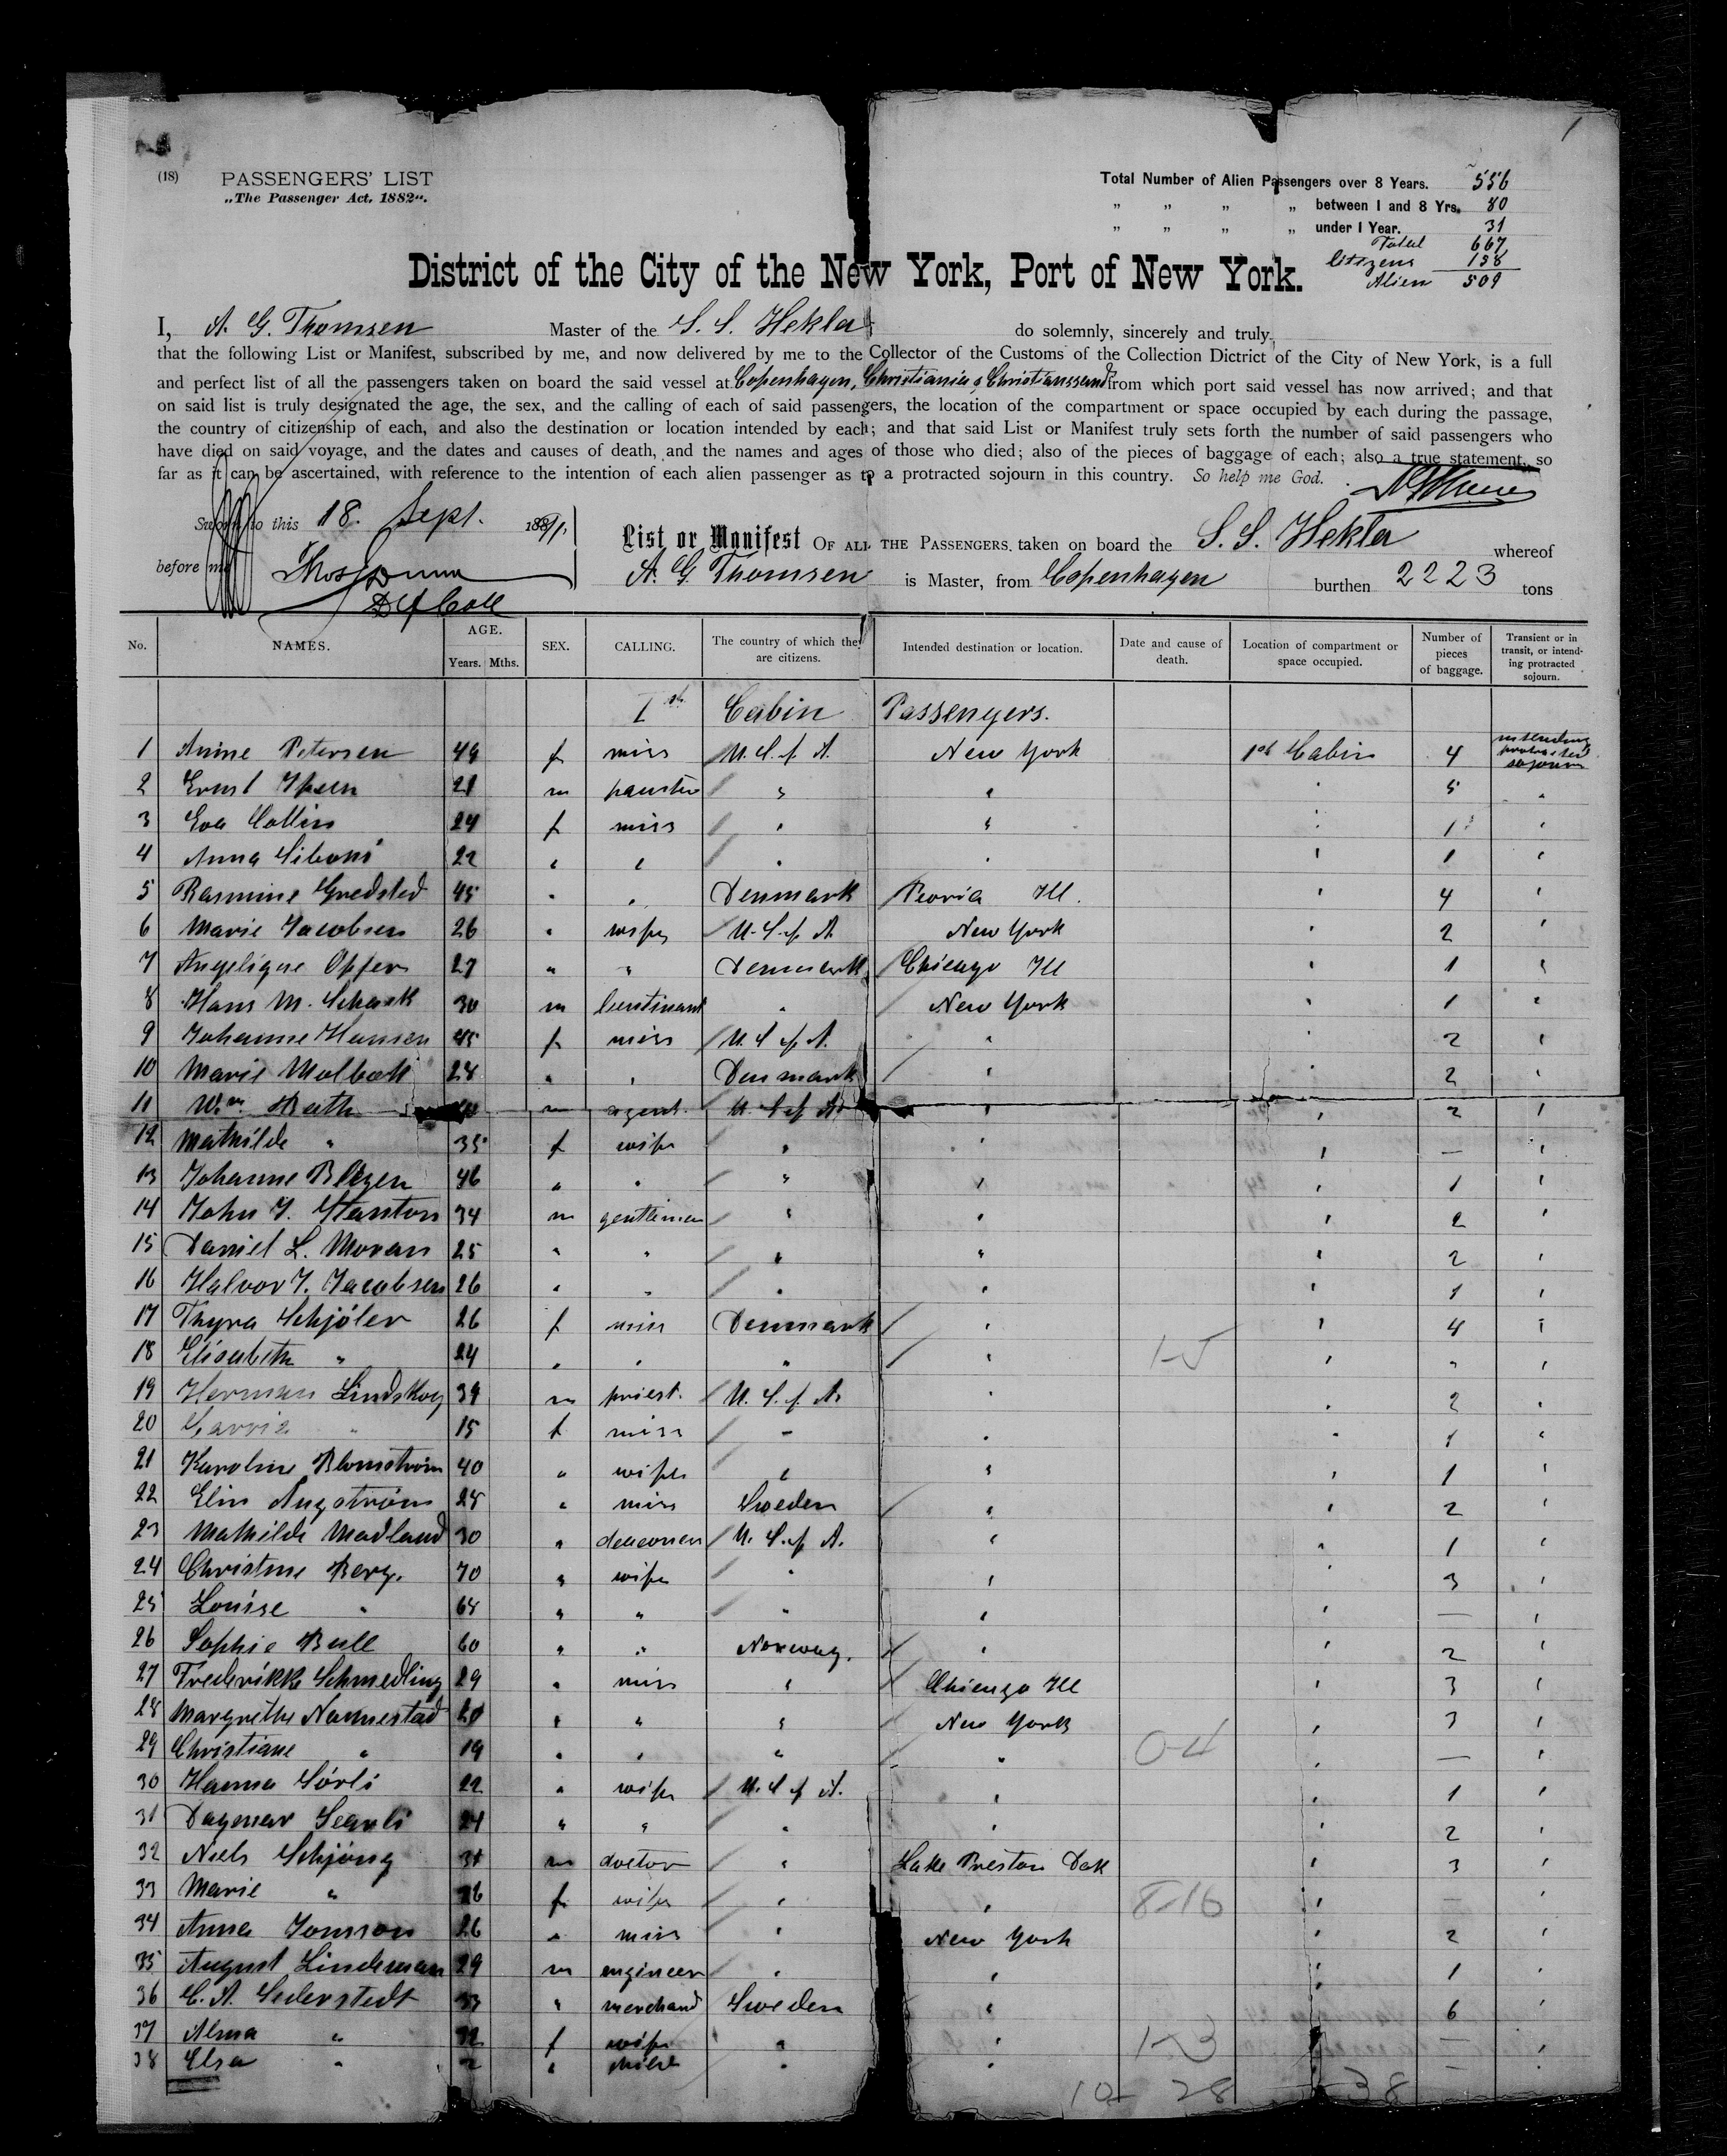 1
(18)
PASSENGERS' LIST
„The Passenger Act, 1882“.
Total Number of Alien Passengers over 8 Years. 556
„ „ „ „ between 1 and 8 Yrs. 80
„ „ „ „ under 1 Year. 31
Total 667
Citizens 158
Alien 509
District of the City of the New York, Port of New York.
I, A. G. Thomsen Master of the S. S. Hekla do solemnly, sincerely and truly,
that the following List or Manifest, subscribed by me, and now delivered by me to the Collector of the Customs of the Collection Dictrict of the City of New York, is a full
and perfect list of all the passengers taken on board the said vessel at Copenhagen, Christiania & Christianssand from which port said vessel has now arrived; and that
on said list is truly designated the age, the sex, and the calling of each of said passengers, the location of the compartment or space occupied by each during the passage,
the country of citizenship of each, and also the destination or location intended by each; and that said List or Manifest truly sets forth the number of said passengers who
have died on said voyage, and the dates and causes of death, and the names and ages of those who died; also of the pieces of baggage of each; also a true statement, so
far as it can be ascertained, with reference to the intention of each alien passenger as to a protracted sojourn in this country. So help me God.
Sworn to this 18. Sept. 1891
before me
List or Manifest OF ALL THE PASSENGERS taken on board the S. S. Hekla whereof
A. G. Thomsen is Master, from Copenhagen burthen 2223 tons
No. NAMES. AGE. Years. Mths. SEX. CALLING. The country of which they are citizens. Intended destination or location. Date and cause of death. Location of compartment or space occupied. Number of pieces of baggage. Transient or in transit, or intending protracted sojourn.
Ist Cabin Passengers.
1 Anine Petersen 49 f miss U. S. of A. New York 1st Cabin 4 intending protracted sojourn
2 Ernst Ipsen 21 m " " " 5 "
3 Eva Collin 24 f miss " " " 1 "
4 Anna Siboni 22 " " " " " 1 "
5 Rasmine Gredsted 45 " " Denmark Peoria Ill. " 4 "
6 Marie Jacobsen 26 " wife U. S. of A. New York " 2 "
7 Angelique Opfer 27 " " Denmark Chicago Ill " 1 "
8 Hans M. Schack 30 m lieutinant " New York " 1 "
9 Johanne Hansen 45 f miss U. S. of A. " " 2 "
10 Marie Molbech 28 " " Denmark " " 2 "
11 Wm. Bath m agent U. S. of A. " " 2 "
12 Mathilde " 35 f wife " " " — "
13 Johanne 46 " " " " " 1 "
14 John J. Stanton 34 m gentleman " " " 2 "
15 Daniel L. Moran 25 " " " " " 2 "
16 Halvor J. Jacobsen 26 " " " " " 1 "
17 Thyra Schjöler 26 f miss Denmark " " 4 "
18 Elisabeth " 24 " " " " 1-5 " " "
19 Herman Lindskog 39 m priest U. S. of A. " " 2 "
20 Carrie " 15 f miss " " " 1 "
21 Karoline Blomström 40 " wife " " " 1 "
22 Elin Angström 25 " miss Sweden " " 2 "
23 Mathilde Madland 30 " deaconess U. S. of A. " " 1 "
24 Christine Berg. 70 " wife " " " 3 "
25 Louise " 68 " " " " " — "
26 Sophie Bull 60 " " Norway. " " 2 "
27 Frederikke Schmedling 29 " miss " Chicago Ill " 3 "
28 Margrethe Nannestad 20 " " " New York " 3 "
29 Christiane " 19 " " " " 0-4 " — "
30 Hanna Sörli 22 " wife U. S. of A. " " 1 "
31 Dagmar 24 " " " " " 2 "
32 Niels Schjöng 31 m doctor " Lake Preston Dak " 3 "
33 Marie " 26 f wife " " 8-16 " — "
34 Anna Jonsson 26 " miss " New York " 2 "
35 August Lindeman 29 m engineer " " " 1 "
36 C. A. Sederstedt 33 " merchand Sweden " " 6 "
37 Alma " 32 f wife " " 1-3 " — "
38 Elsa " 2 " child " " " — "
10 28 38